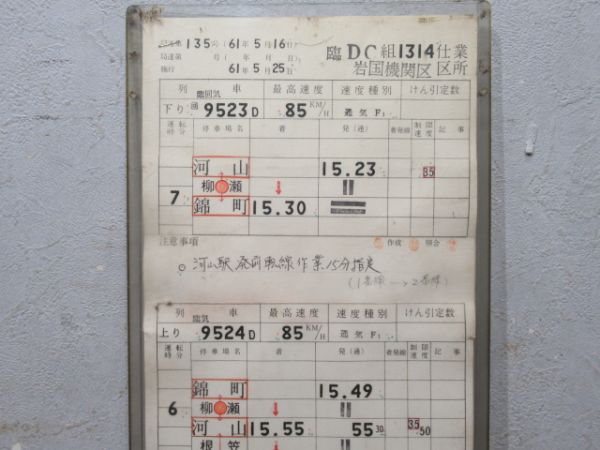 第135号(61年5月16日)
臨DC組1314仕業
局達第 号( 年 月 日)
岩国機関区 区所
施行 61年5月25日
列 車 最高速度 速度種別 けん引定数
臨回気
下り 回 9523D 85KM/H 通気F1
運転時分 停車場名 着 発(通) 着発線 制限速度 記事
河山 15.23 35
柳瀬 ↓ ||
7
錦町 15.30 ══
注意事項 作成 照合
河山駅発前転線作業15分指定
(1番線→2番線)
列 車 最高速度 速度種別 けん引定数
臨気
上り 9524D 85KM/H 通気F1
運転時分 停車場名 着 発(通) 着発線 制限速度 記事
錦町 15.49
柳瀬 ↓ ||
6
河山 15.55 55 30 35 50
根笠 ↓ ||